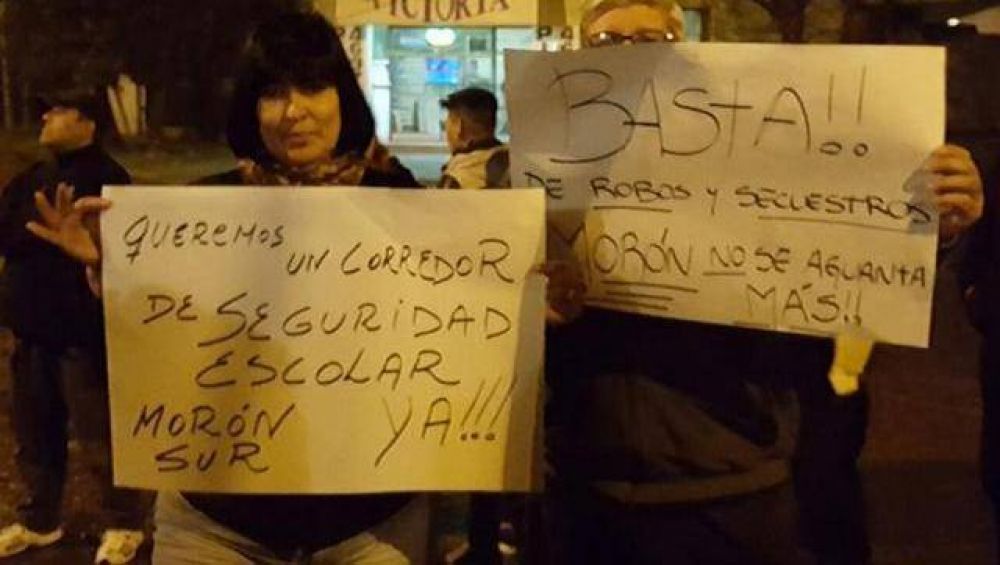 VICTORIA
QUEREMOS
UN CORREDOR
DE SEGURIDAD
ESCOLAR
MORÓN
SUR
YA!!!
BASTA!!
DE ROBOS Y SECUESTROS
MORÓN NO SE AGUANTA
MÁS!!